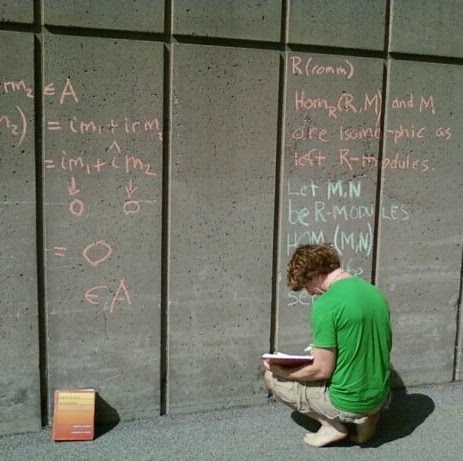 rm₂ ∈ A
= im₁ + irm₂
= im₁ + îm₂
↓ ↓
0 0
= 0
∈ A
R (comm)
Hom_R(R, M) and M
are isomorphic as
left R-modules.
Let M, N
be R-MODULES
HOM (M, N)